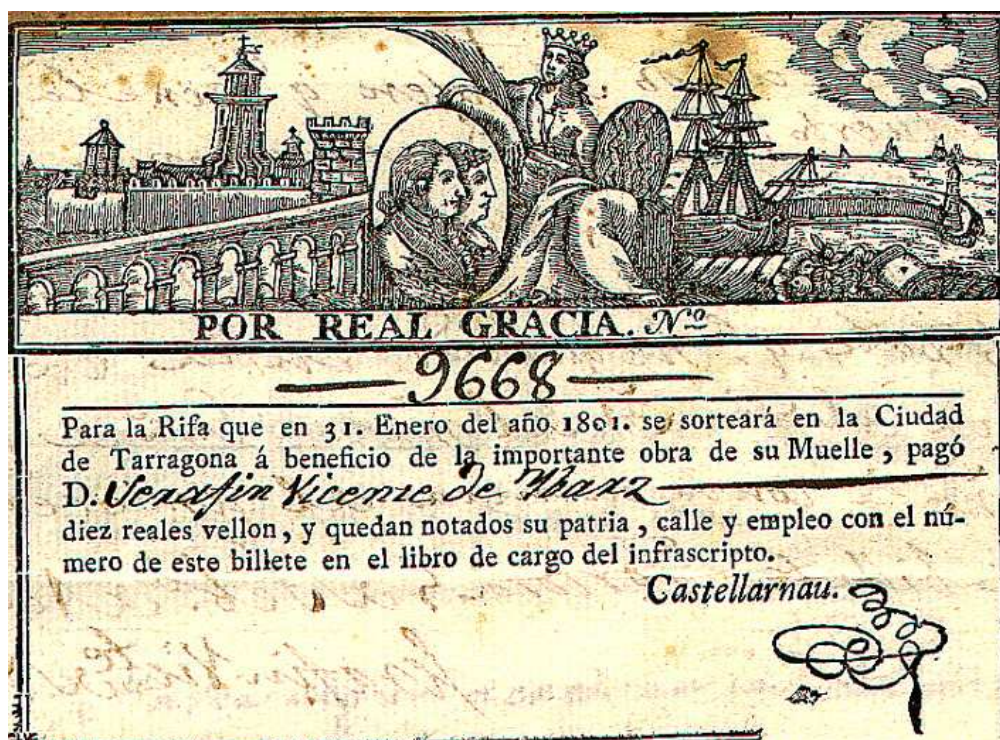 POR REAL GRACIA. Nº
9668
Para la Rifa que en 31. Enero del año 1801. se sorteará en la Ciudad
de Tarragona á beneficio de la importante obra de su Muelle, pagó
D. Serafin Vicente de Ybarz
diez reales vellon, y quedan notados su patria, calle y empleo con el nú-
mero de este billete en el libro de cargo del infrascripto.
Castellarnau.